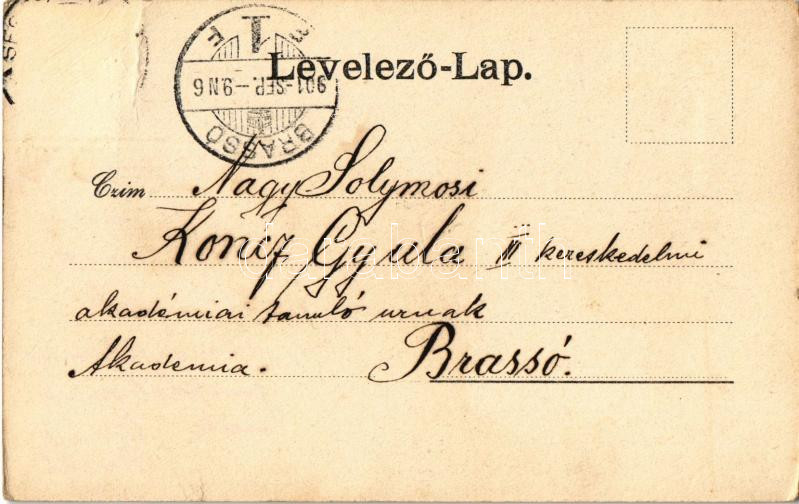 Levelező-Lap.
BRASSÓ
901-SEP.-9.N6
1
F
Czim Nagy Solymosi
Koncz Gyula III kereskedelmi
akadémiai tanuló urnak
Akademia. Brassó.
darabanth